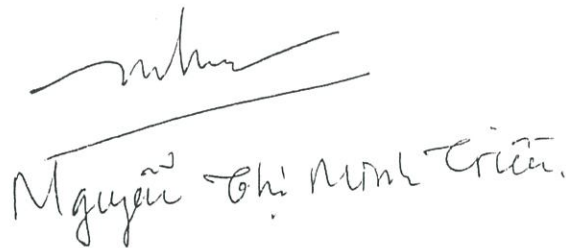 Nguyễn Thị Minh Triều.